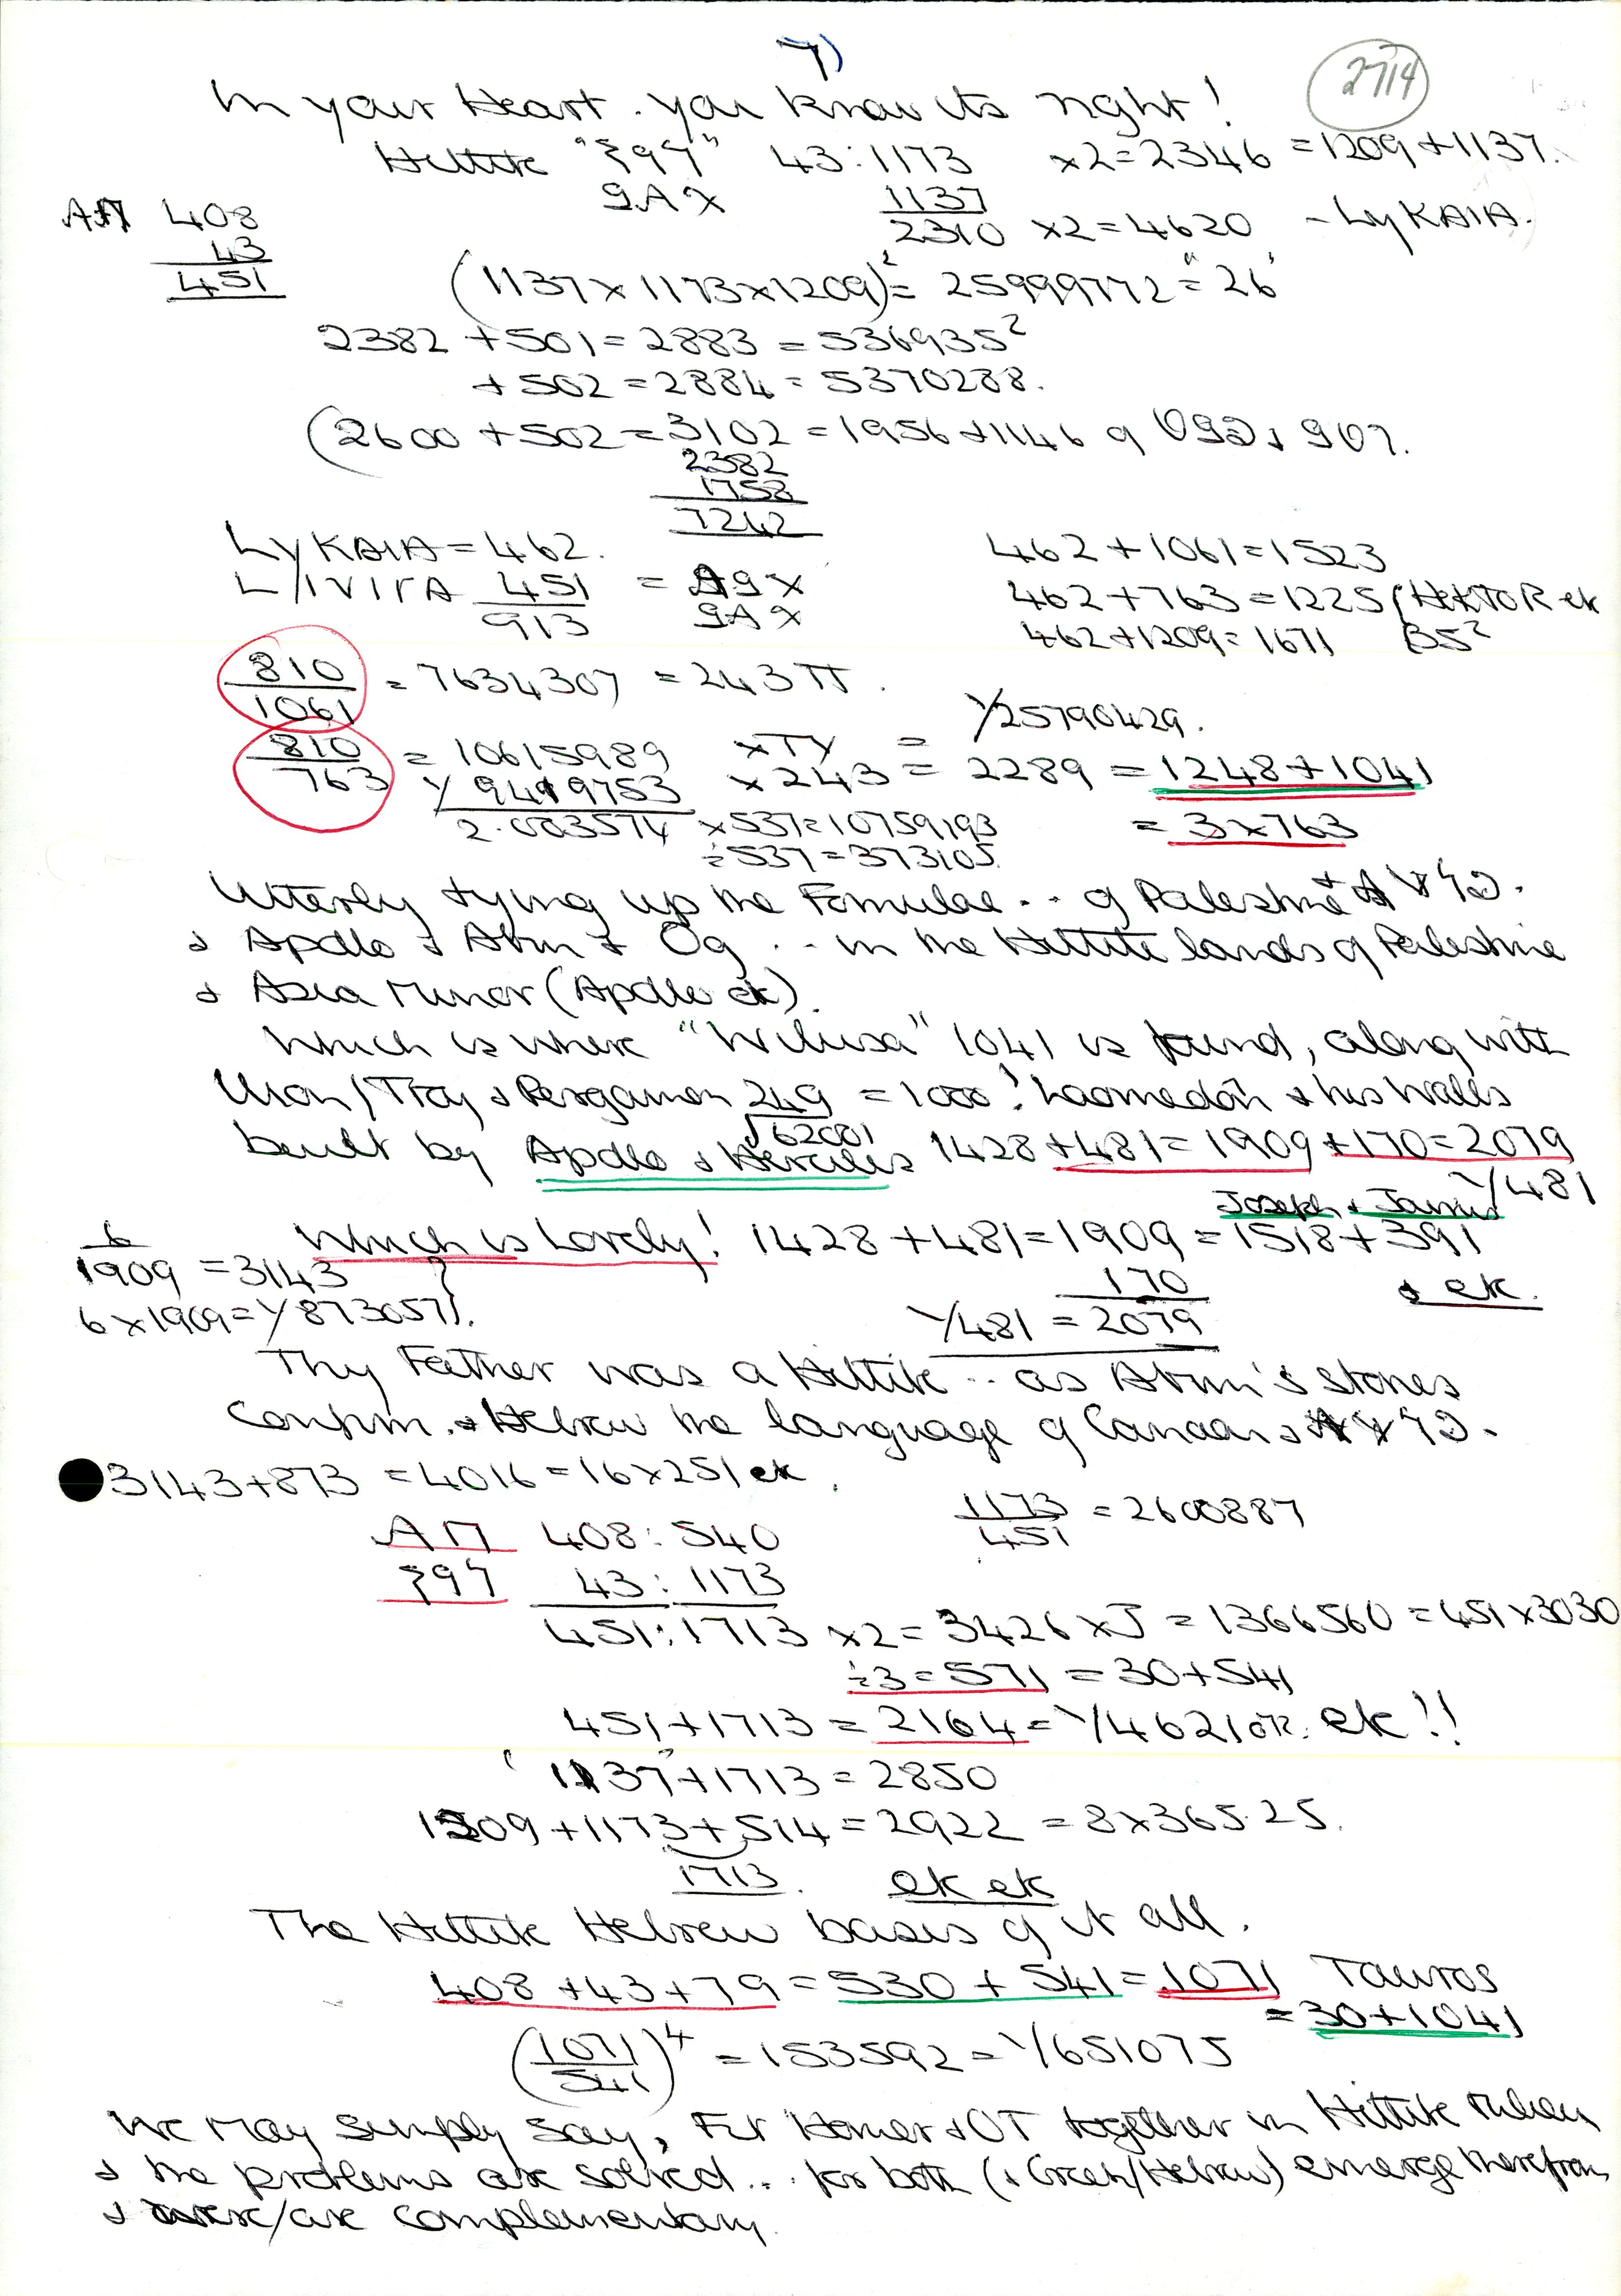 7)
2714
In your Heart. you know its right!
Hittite 43:1173 x2=2346 =1209+1137.
1137
2310 x2=4620 - LyKAIA.
408
43
451
(1137x1173x1209)²= 25999772="26"
2382 +501=2883=536935²
+502=2884=5370288.
(2600+502=3102=1956+1146
2382
1758
7242
LyKAIA=462. 462+1061=1523
451 462+763=1225 (HEKTOR ek
913 462+1209=1671 35²
810/1061 = 7634307 = 243π.
1/25790429.
810/763 = 10615989 =
1/9419753 x243 = 2289 = 1248+1041
2.003574 x537=10759193 = 3x763
÷537=373105
Utterly tying up the Formulae.. of Palestine
& Apollo & Abm & Og .. in the Hittite lands of Palestine
& Asia Minor (Apollo ek).
Which is where "Wilusa" 1041 is found, along with
Ilion/Troy & Pergamon 249 = 1000! Laomedon & his walls
√62001
built by Apollo & Hercules 1428+481=1909+170=2079
1/481
Joseph & James
Which is Lovely! 1428+481=1909=1518+391
6/1909 =3143 170 & ek.
6x1909=1/873057). 1/481 = 2079
Thy Father was a Hittite.. as Abm's stones
Confirm. & Hebrew the language of Canaan &
3143+873 =4016=16x251 ek.
1173/451 = 2600887
408:540
43:1173
451:1713 x2= 3426 xJ = 1366560 =451x3030
÷3=571 = 30+541
451+1713 = 2164= 1/462107. ek!!
1137+1713=2850
1209+1173+514=2922 =8x365.25.
1713. ek ek
The Hittite Hebrew basis of it all.
408+43+79=530+541=1071 Tauros
=30+1041
(1071/541)⁴ =153592= 1/651075
We may simply say, Fit Homer & OT together in Hittite
& the problems are solved... for both (& Greek/Hebrew) emerge therefrom
& were/are complementary.